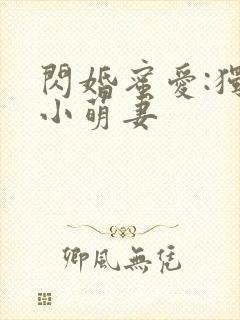 閃婚蜜愛:獨
小萌妻
卿風無凭